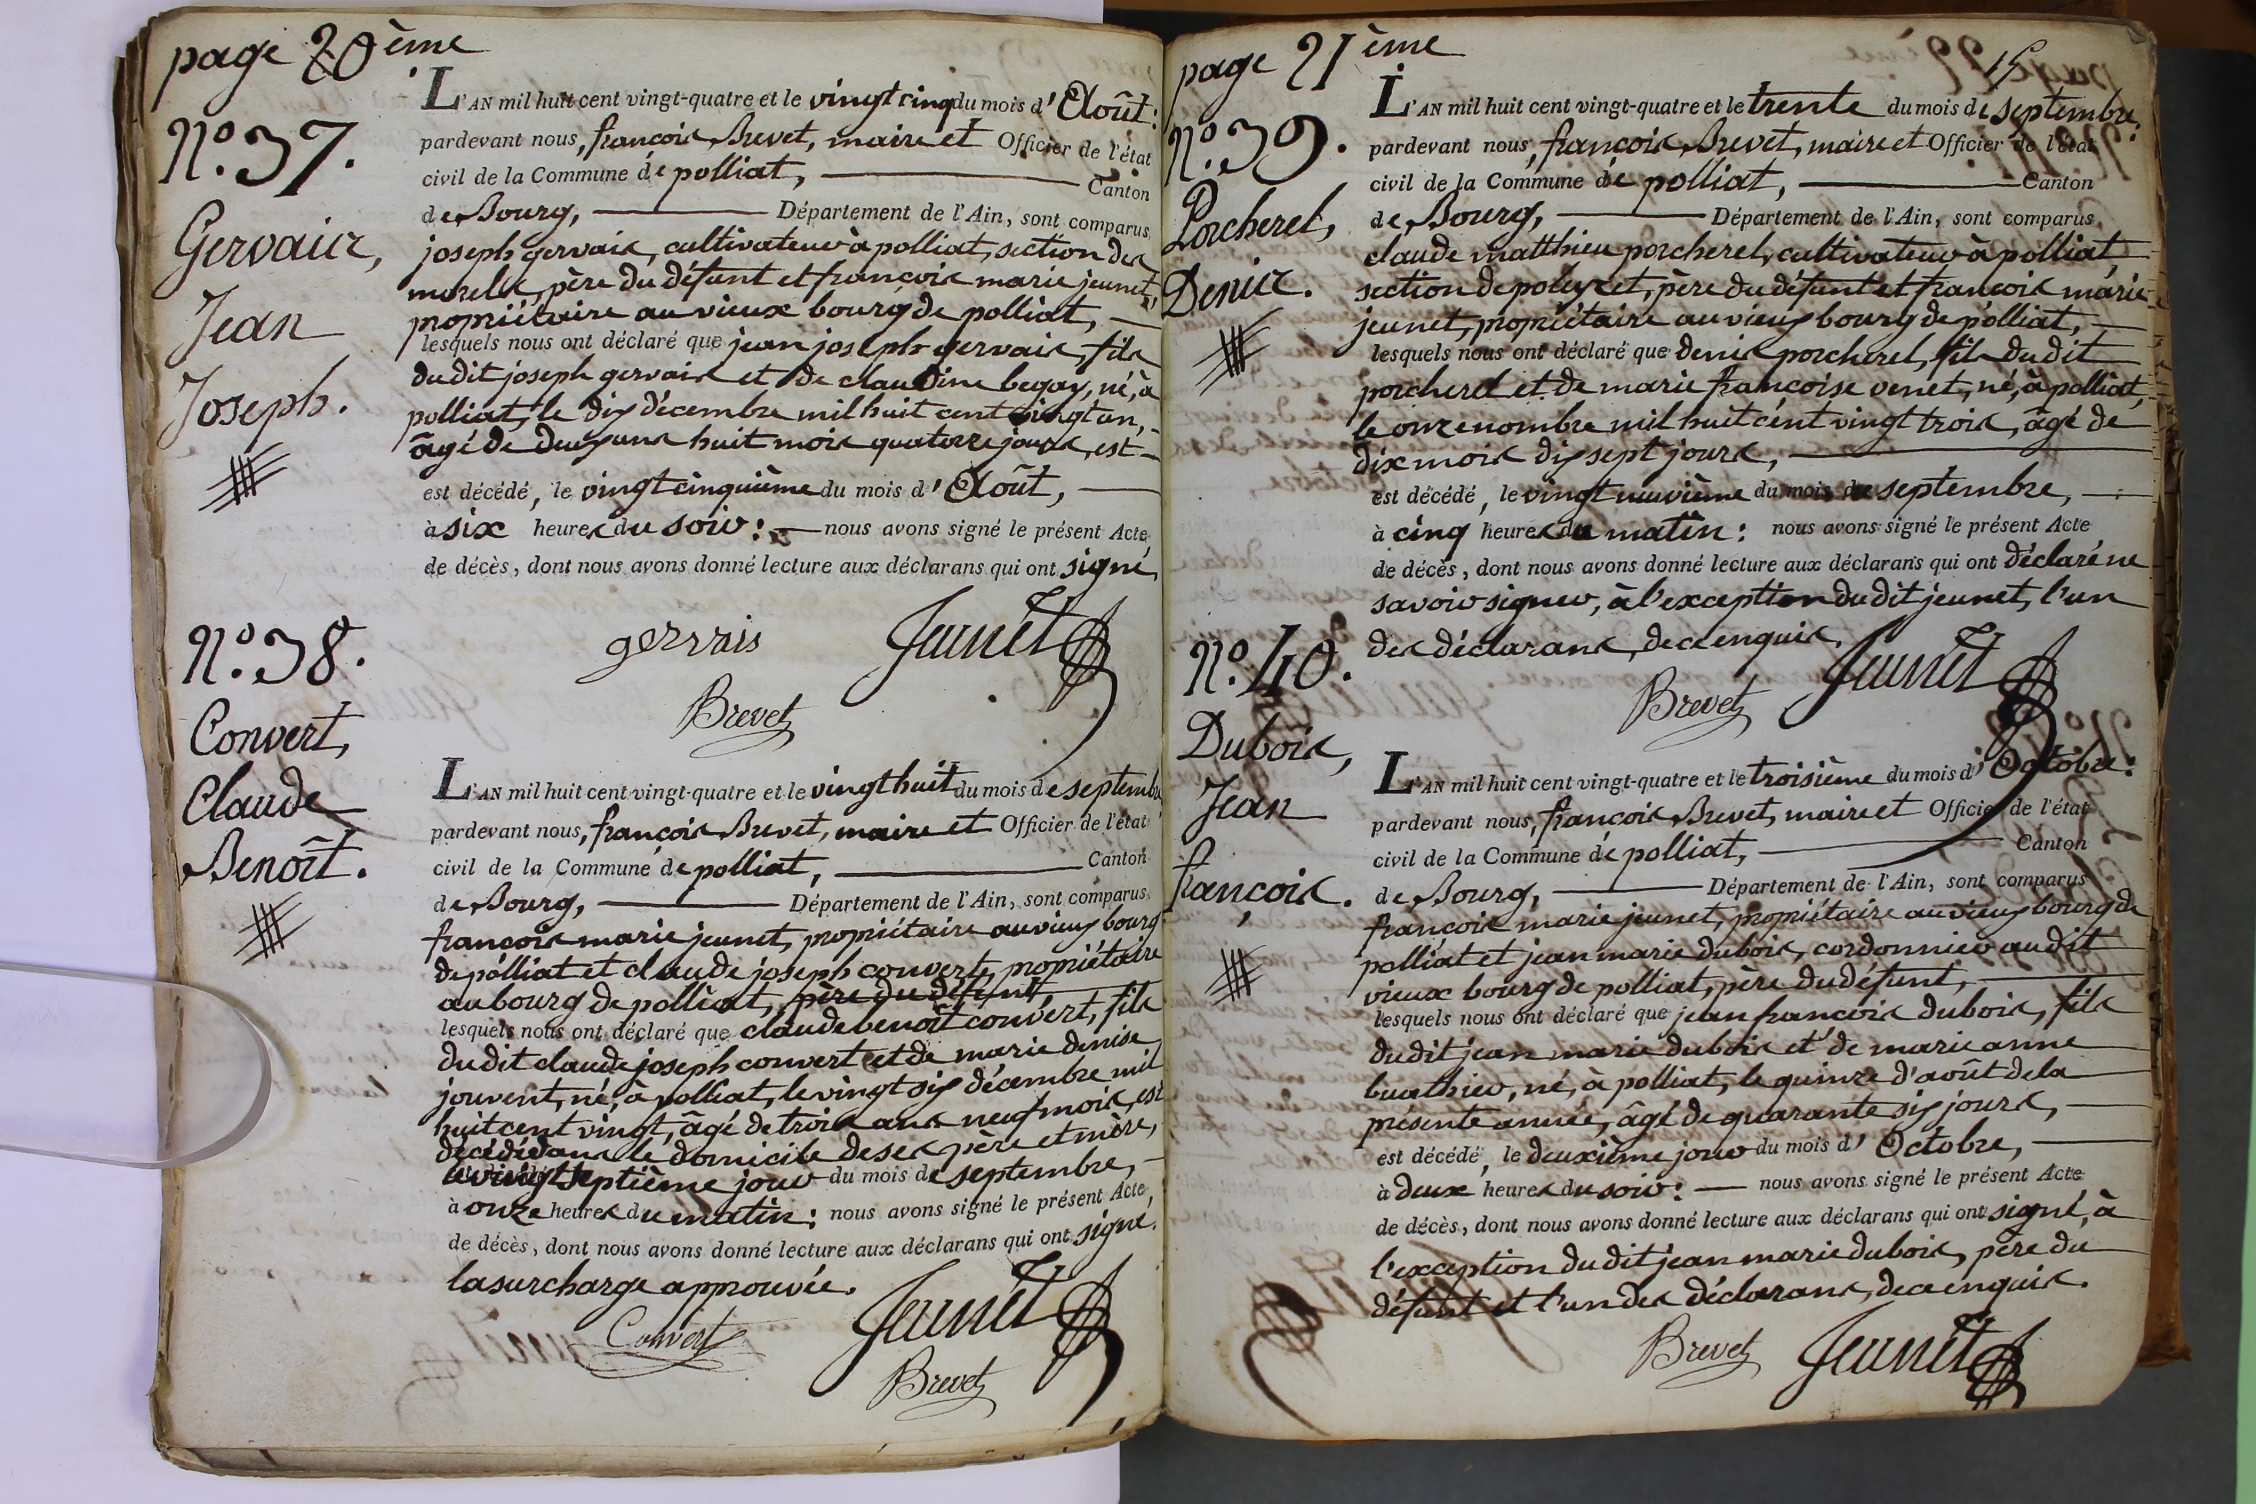 page 20ème
N.º 37.
Gervais,
Jean
Joseph.
L'AN mil huit cent vingt-quatre et le vingt cinq du mois d'Août:
pardevant nous, françois Brevet, maire et Officier de l'état
civil de la Commune de polliat, Canton
de Bourg, Département de l'Ain, sont comparus
joseph gervais, cultivateur à polliat, section des
morels, père du défunt et françois marie jeunet,
propriétaire au vieux bourg de polliat,
lesquels nous ont déclaré que jean joseph gervais, fils
du dit joseph gervais et de claudine begay, né, à
polliat, le dix décembre mil huit cent vingt un,
âgé de deux ans huit mois quatorze jours, est
est décédé, le vingt cinquième du mois d'Août,
à six heures du soir: nous avons signé le présent Acte
de décès, dont nous avons donné lecture aux déclarans qui ont signé,
gervais Jeunet
Brevet
N.º 38.
Convert,
Claude
Benoît.
L'AN mil huit cent vingt-quatre et le vingt huit du mois de septembre
pardevant nous, françois Brevet, maire et Officier de l'état
civil de la Commune de polliat, Canton
de Bourg, Département de l'Ain, sont comparus
françois marie jeunet, propriétaire au vieux bourg
de polliat et claude joseph convert, propriétaire
au bourg de polliat, père du défunt,
lesquels nous ont déclaré que claude benoît convert, fils
du dit claude joseph convert et de marie denise
jouvent, né, à polliat, le vingt six décembre mil
huit cent vingt, âgé de trois ans neuf mois, est
décédé dans le domicile de ses père et mère,
le vingt septième jour du mois de septembre,
à onze heures du matin: nous avons signé le présent Acte
de décès, dont nous avons donné lecture aux déclarans qui ont signé.
la surcharge approuvée.
Convert Jeunet
Brevet
page 21ème
15
N.º 39.
Porcherel,
Denis.
L'AN mil huit cent vingt-quatre et le trente du mois de septembre:
pardevant nous, françois Brevet, maire et Officier de l'état
civil de la Commune de polliat, Canton
de Bourg, Département de l'Ain, sont comparus
claude matthieu porcherel, cultivateur à polliat
section de poleyzet, père du défunt et françois marie
jeunet, propriétaire au vieux bourg de polliat,
lesquels nous ont déclaré que denis porcherel, fils du dit
porcherel et de marie françoise venet, né, à polliat,
le onze nombre mil huit cent vingt trois, âgé de
dix mois dix sept jours,
est décédé, le vingt neuvième du mois de septembre,
à cinq heures du matin: nous avons signé le présent Acte
de décès, dont nous avons donné lecture aux déclarans qui ont déclaré ne
savoir signer, à l'exception du dit jeunet, l'un
des déclarans, de ce enquis.
Brevet Jeunet
N.º 40.
Dubois,
Jean
françois.
L'AN mil huit cent vingt-quatre et le troisième du mois d'Octobre:
pardevant nous, françois Brevet, maire et Officier de l'état
civil de la Commune de polliat, Canton
de Bourg, Département de l'Ain, sont comparus
françois marie jeunet, propriétaire au vieux bourg de
polliat et jean marie dubois, cordonnier au dit
vieux bourg de polliat, père du défunt,
lesquels nous ont déclaré que jean françois dubois, fils
du dit jean marie dubois et de marie anne
buathier, né, à polliat, le quinze d'août de la
présente année, âgé de quarante six jours,
est décédé, le deuxième jour du mois d'Octobre,
à deux heures du soir: nous avons signé le présent Acte
de décès, dont nous avons donné lecture aux déclarans qui ont signé, à
l'exception du dit jean marie dubois, père du
défunt et l'un des déclarans, de ce enquis.
Brevet Jeunet